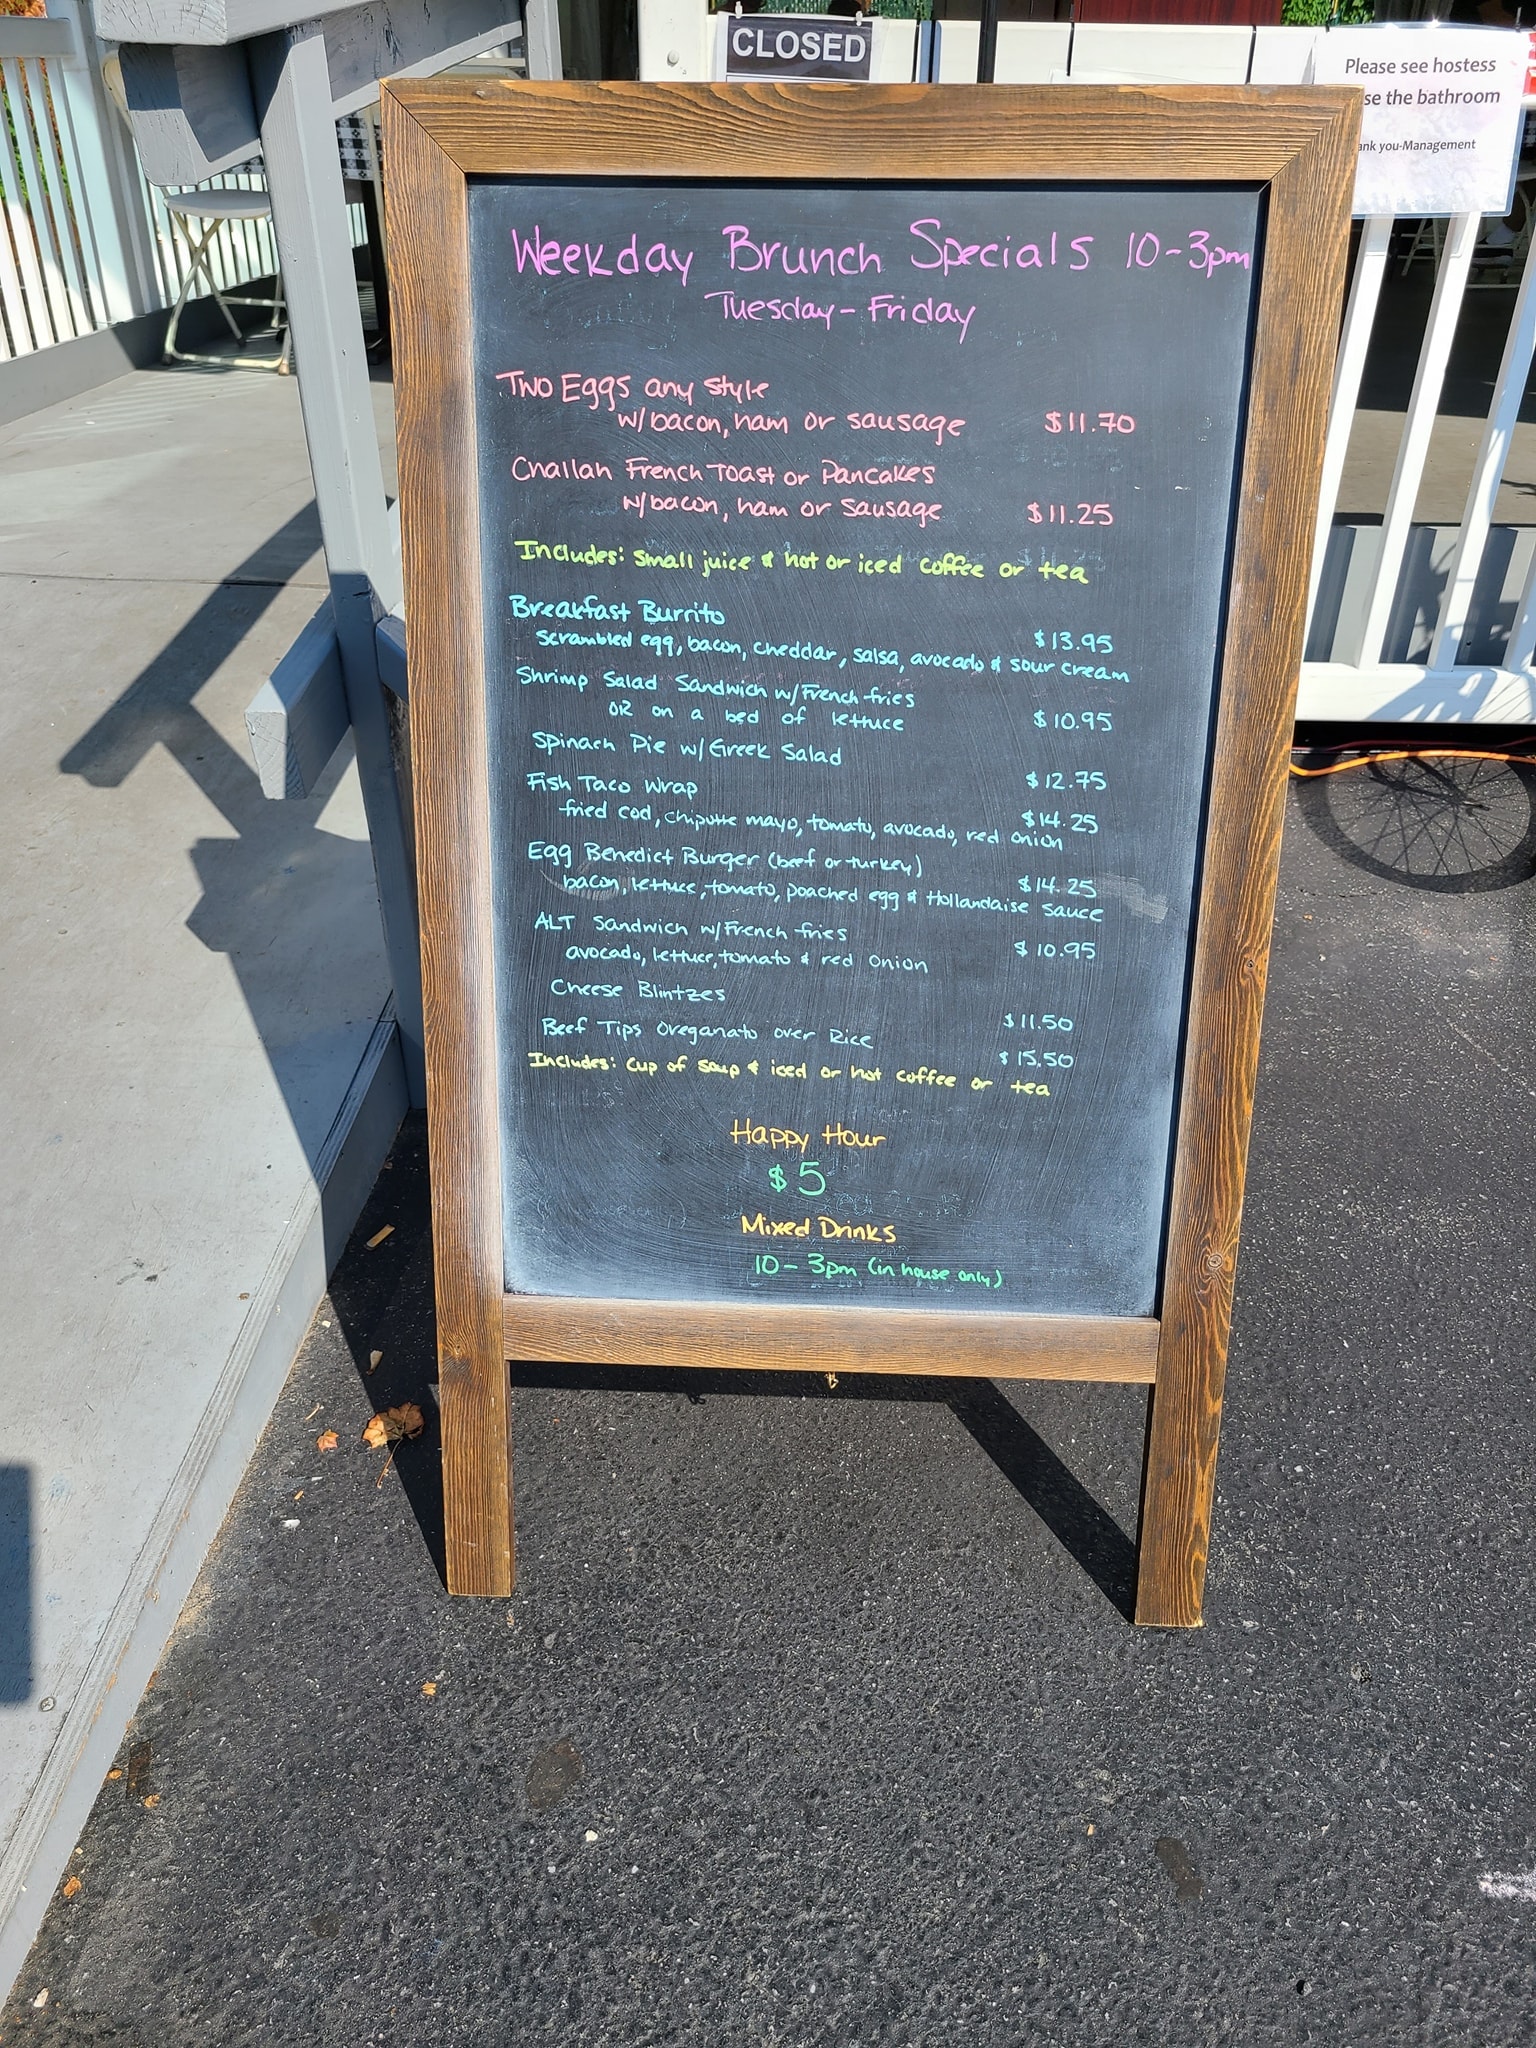 CLOSED
Please see hostess
se the bathroom
ank you-Management
Weekday Brunch Specials 10-3pm
Tuesday-Friday
Two Eggs any style
w/bacon, ham or sausage $11.70
Challah French Toast or Pancakes
w/bacon, ham or sausage $11.25
Includes: small juice & hot or iced coffee or tea
Breakfast Burrito $13.95
scrambled egg, bacon, cheddar, salsa, avocado & sour cream
Shrimp Salad Sandwich w/French fries
OR on a bed of lettuce $10.95
Spinach Pie w/Greek Salad $12.75
Fish Taco Wrap $14.25
fried cod, chipotle mayo, tomato, avocado, red onion
Egg Benedict Burger (beef or turkey) $14.25
bacon, lettuce, tomato, poached egg & Hollandaise sauce
ALT Sandwich w/French fries $10.95
avocado, lettuce, tomato & red onion
Cheese Blintzes $11.50
Beef Tips Oreganato over Rice $15.50
Includes: cup of soup & iced or hot coffee or tea
Happy Hour
$5
Mixed Drinks
10-3pm (in house only)